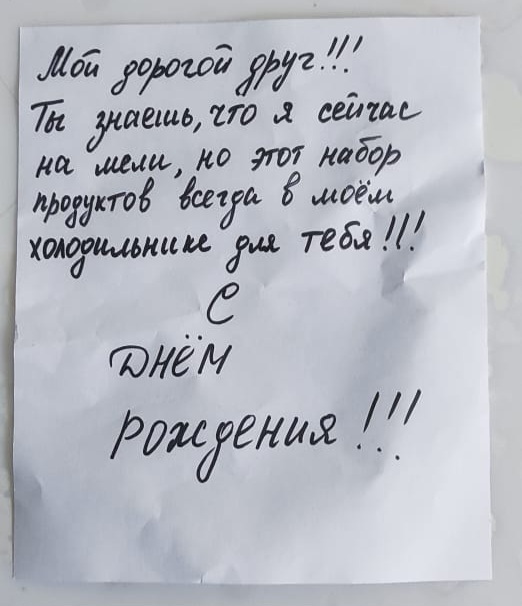 Мой дорогой друг!!!
Ты знаешь, что я сейчас
на мели, но этот набор
продуктов всегда в моём
холодильнике для тебя!!!
С
ДНЁМ
рождения!!!